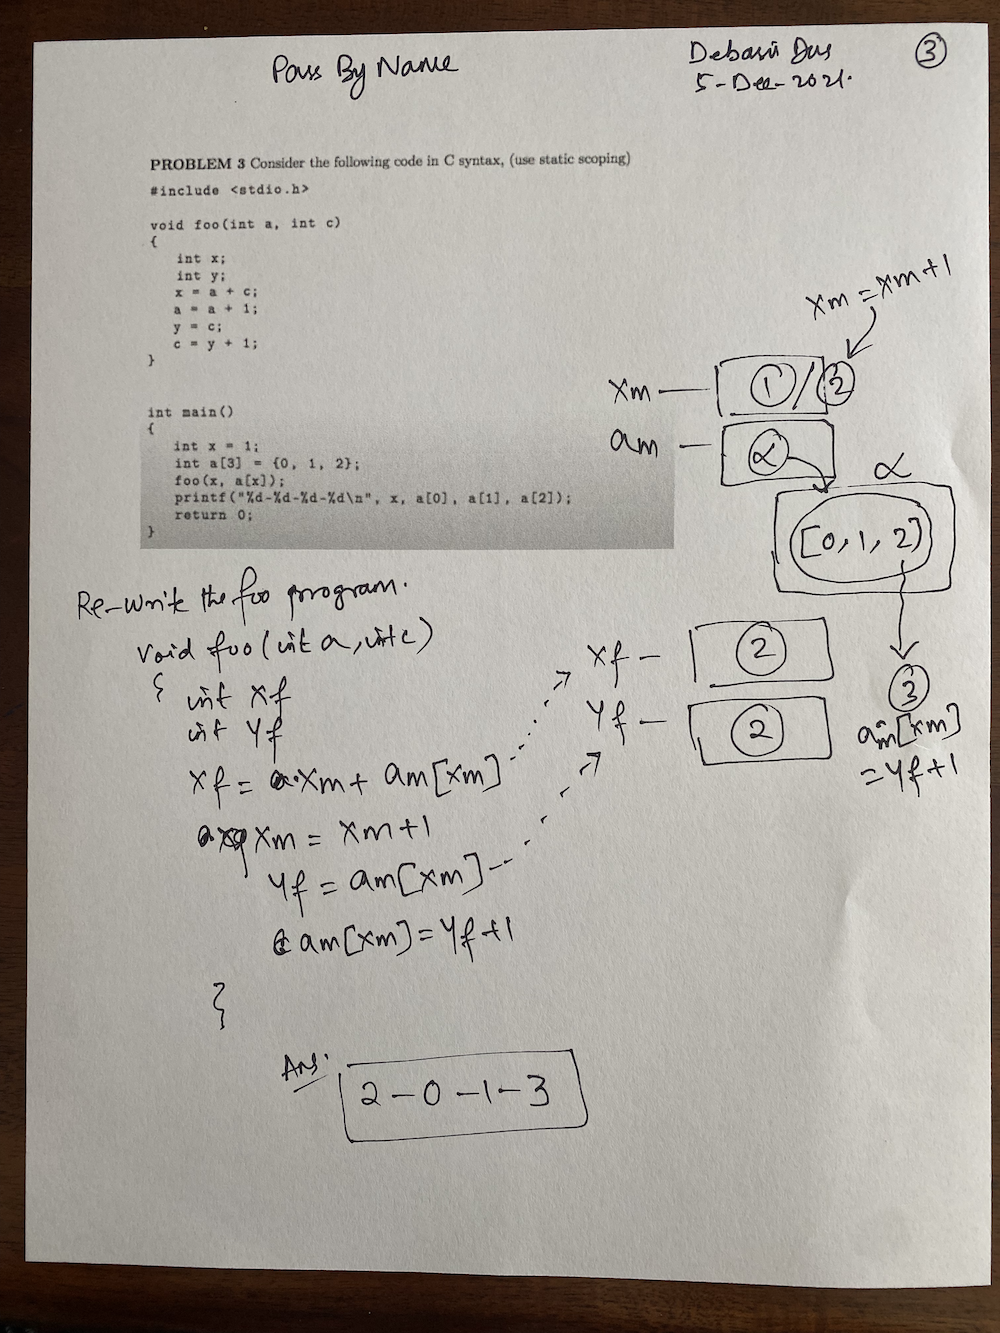 Pass By Name
Debasis Das
5-Dec-2021.
3
PROBLEM 3 Consider the following code in C syntax, (use static scoping)
#include <stdio.h>
void foo(int a, int c)
{
int x;
int y;
x = a + c;
a = a + 1;
y = c;
c = y + 1;
}
int main()
{
int x = 1;
int a[3] = {0, 1, 2};
foo(x, a[x]);
printf("%d-%d-%d-%d\n", x, a[0], a[1], a[2]);
return 0;
}
xm = xm+1
xm — 1/2
am — α
α
[0, 1, 2]
Re-write the foo program.
void foo(int a, int c)
{ int xf
int yf
xf = xm + am[xm]
xm = xm+1
yf = am[xm]
am[xm] = yf+1
}
xf — 2
yf — 2
3
am[xm]
= yf+1
Ans:
2-0-1-3